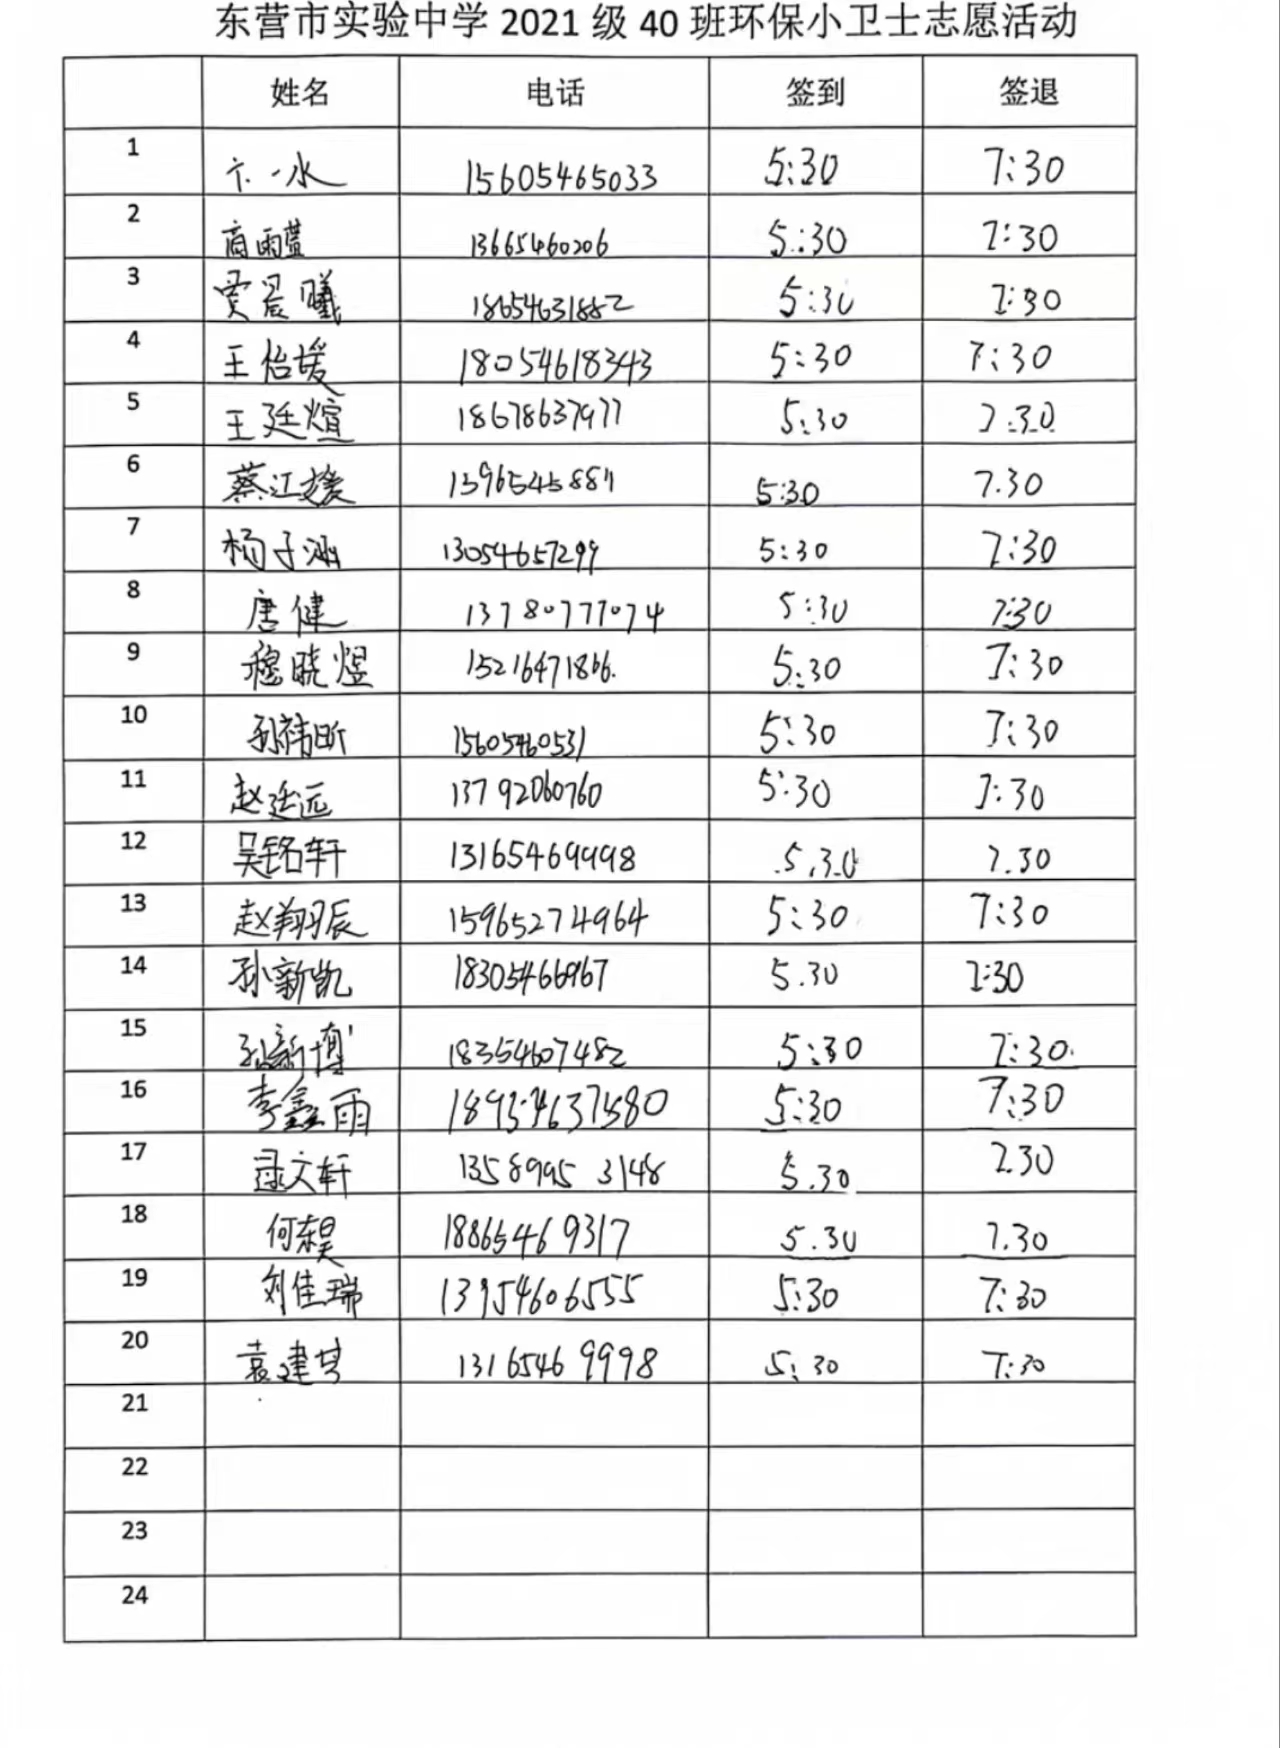 东营市实验中学 2021 级 40 班环保小卫士志愿活动
姓名 电话 签到 签退
1 卞一水 15605465033 5:30 7:30
2 商雨萱 13665460206 5:30 7:30
3 贾晨曦 18654631882 5:30 7:30
4 王怡媛 18054618343 5:30 7:30
5 王廷煊 18678637977 5:30 7.30
6 蔡江媛 5:30 7.30
7 杨子涵 13054657299 5:30 7:30
8 唐健 13780777074 5:30 7:30
9 穆晓煜 15216471866. 5:30 7:30
10 孙祎昕 15605460531 5:30 7:30
11 赵廷远 13792060760 5:30 7:30
12 吴铭轩 13165469998 5.30 7.30
13 赵翔辰 15965274964 5:30 7:30
14 孙新凯 18305466967 5.30 7:30
15 孙新博 18354607482 5:30 7:30
16 李鑫雨 18954637580 5:30 7:30
17 文轩 13589953148 5.30 7.30
18 何东昊 18865469317 5.30 7.30
19 刘佳瑞 13954606555 5:30 7:30
20 袁建 13165469998 5:30 7:30
21
22
23
24